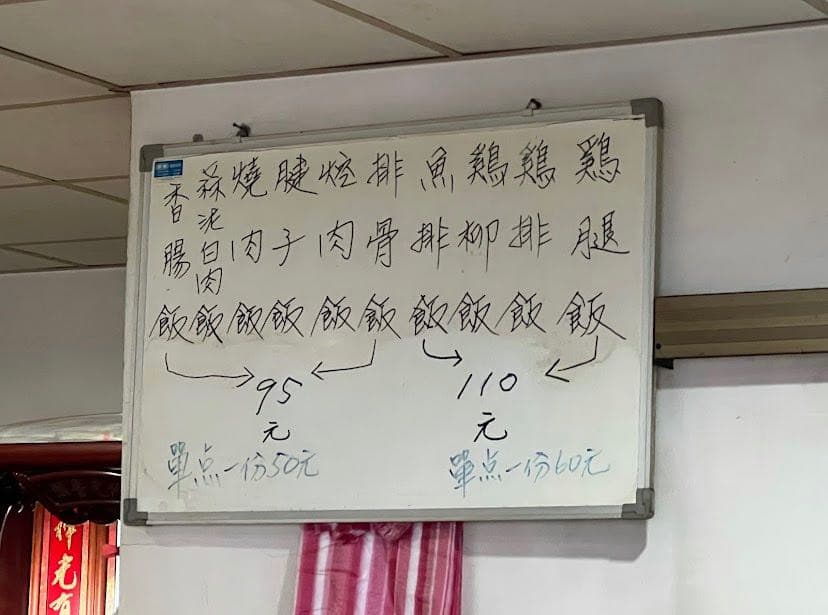 雞腿飯
鷄排飯
鷄柳飯
魚排飯
排骨飯
焢肉飯
腱子飯
燒肉飯
蒜泥白肉飯
香腸飯
110
元
95
元
單点一份60元
單点一份50元
光有